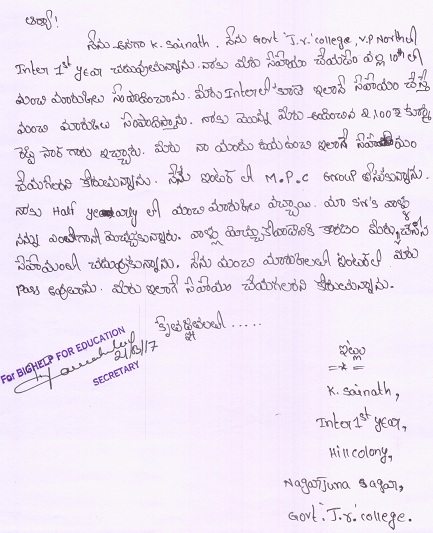 ఆర్యా!
నేను అనగా K. Sainath. నేను Govt "J.r." college, V.P North లో
Inter 1st year చదువుతున్నాను. నాకు మీరు సహాయం చేయడం వల్ల 10th లో
మంచి మార్కులు సంపాదించాను. మీరు Inter లో కూడా ఇలానే సహాయం చేస్తే
మంచి మార్కులు సంపాదిస్తాను. నాకు మొన్న మీరు ఇచ్చిన 2,100
సార్ గారు ఇచ్చారు. మీరు నా యందు దయవుంచి ఇలాగే సహాయం
చేయగలరని కోరుచున్నాను. నేను ఇంటర్ లో M.P.C Group తీసుకున్నాను.
నాకు Half yearly లో మంచి మార్కులు వచ్చాయి. మా Sir's వాళ్ళు
నన్ను ఎంతగానో మెచ్చుకున్నారు. వాళ్ళు మెచ్చుకోవడానికి కారణం మీరు చేసిన
సహాయంతో చదువుకున్నాను. నేను మంచి మార్కులతో ఇంటర్ లో
pass అవుతాను. మీరు ఇలాగే సహాయం చేయగలరని కోరుచున్నాను.
కృతజ్ఞతలు .....
For BIGHELP FOR EDUCATION
21/03/17
SECRETARY
ఇట్లు
K. Sainath,
Inter 1st year,
Hill colony,
Nagarjuna Sagar,
Govt. "J.r." college.